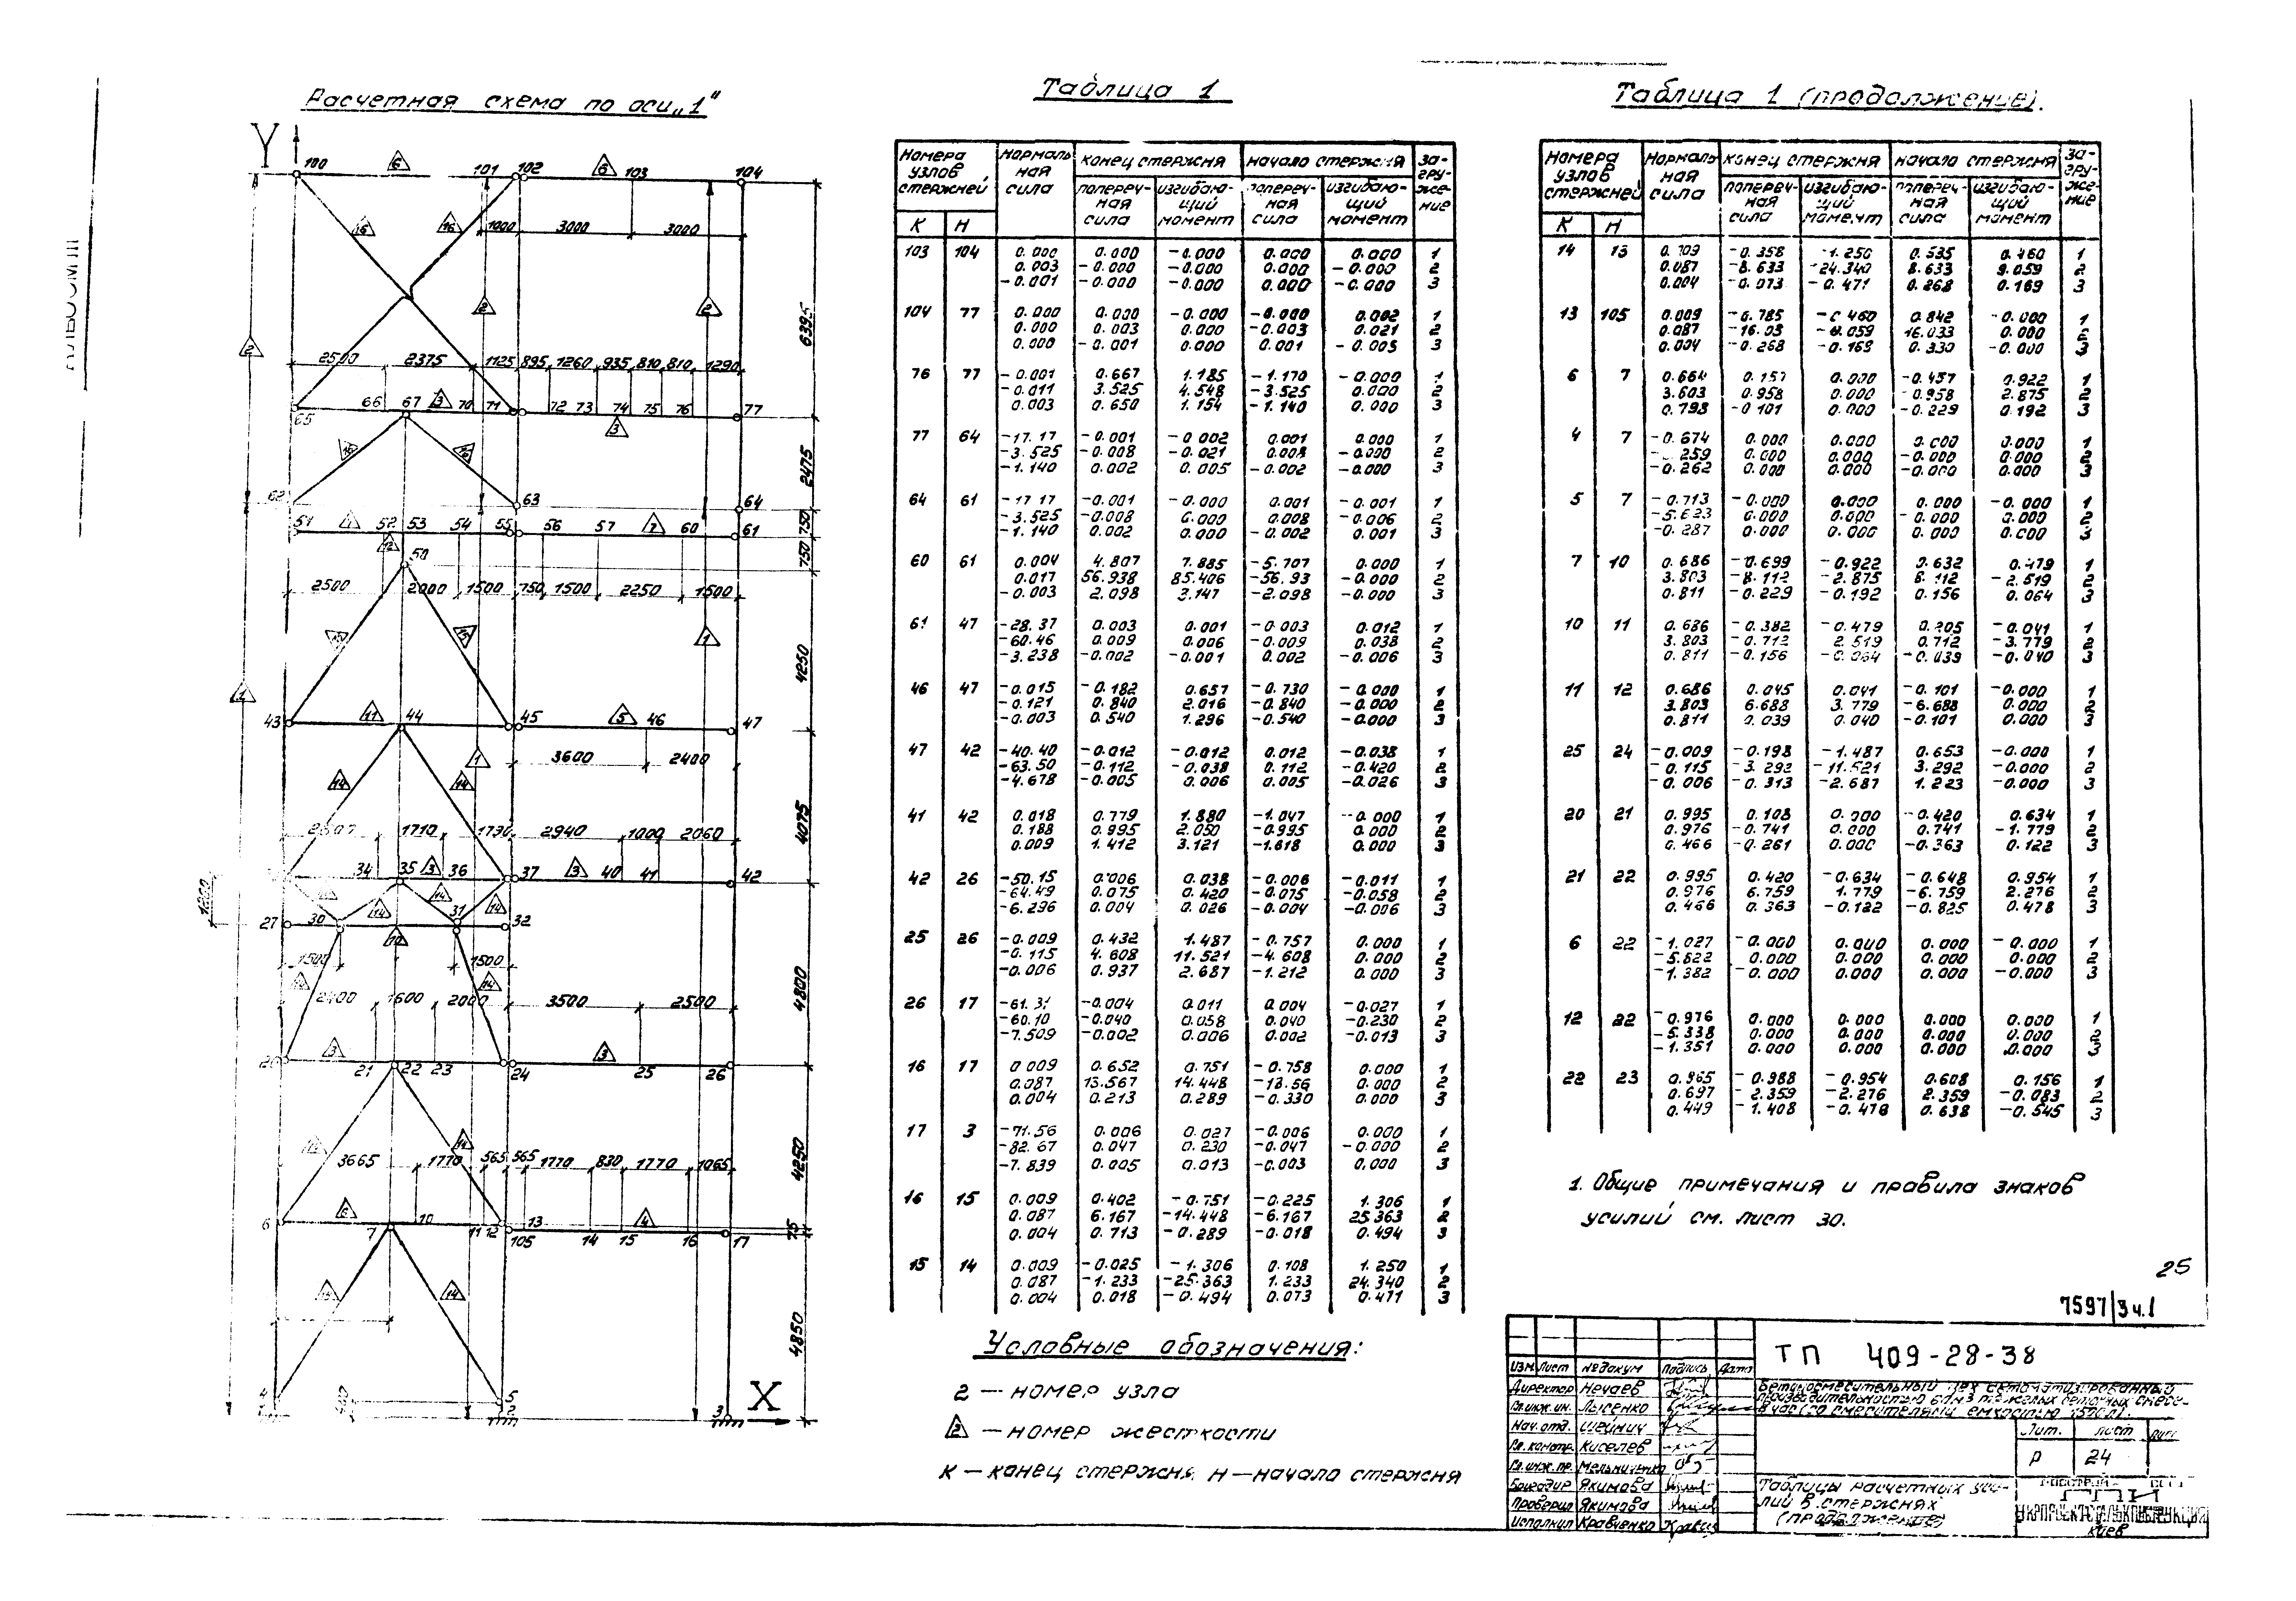 Расчетная схема по оси „1“
Таблица 1
Таблица 1 (продолжение).
Y
100 6 101 102 6 103 104
16 16 1000 3000 3000
2 2 2 6395
2500 2375 1125 895 1260 935 810 810 1290
65 66 67 3 70 71 72 73 74 75 76 77
3
16 2475
62 63 64
51 52 53 54 55 56 57 2 60 61 750
50 750
2500 2000 1500 750 1500 2250 1500
1 1 4250
43 11 44 45 5 46 47
1 3600 2400
14 4075
1710 1730 2940 1000 2060
34 35 3 36 37 3 40 41 42
1200 14 14
27 30 31 32
1500 10 1500
14 4800
2400 1600 2000 3500 2500
3 3
20 21 22 23 24 25 26
14 4250
3665 1770 565 565 1770 830 1770 1065
6 7 10 11 12 13 105 14 15 4 16 17 75
14 4850
4 5 2 3 X
Номера узлов стержней Нормальная сила Конец стержня Начало стержня Загружение
К Н поперечная сила изгибающий момент поперечная сила изгибающий момент
103 104 0.000 0.000 -0.000 0.000 0.000 1
0.003 -0.000 -0.000 0.000 -0.000 2
-0.001 -0.000 -0.000 0.000 -0.000 3
104 77 0.000 0.000 -0.000 -0.000 0.002 1
0.000 0.003 0.000 -0.003 0.021 2
0.000 -0.001 0.000 0.001 -0.005 3
76 77 -0.001 0.667 1.185 -1.170 -0.000 1
-0.011 3.525 4.548 -3.525 0.000 2
0.003 0.650 1.154 -1.140 0.000 3
77 64 -17.17 -0.001 -0.002 0.001 0.000 1
-3.525 -0.008 -0.021 0.008 -0.000 2
-1.140 0.002 0.005 -0.002 -0.000 3
64 61 -17.17 -0.001 -0.000 0.001 -0.001 1
-3.525 -0.008 0.000 0.008 -0.006 2
-1.140 0.002 0.000 -0.002 0.001 3
60 61 0.004 4.807 7.885 -5.707 0.000 1
0.017 56.938 85.406 -56.93 -0.000 2
-0.003 2.098 3.147 -2.098 -0.000 3
61 47 -28.37 0.003 0.001 -0.003 0.012 1
-60.46 0.009 0.006 -0.009 0.038 2
-3.238 -0.002 -0.001 0.002 -0.006 3
46 47 -0.015 -0.182 0.657 -0.730 -0.000 1
-0.121 0.840 2.016 -0.840 -0.000 2
-0.003 0.540 1.296 -0.540 -0.000 3
47 42 -40.40 -0.012 -0.012 0.012 -0.038 1
-63.50 -0.112 -0.038 0.112 -0.420 2
-4.678 -0.005 0.006 0.005 -0.026 3
41 42 0.018 0.779 1.880 -1.047 -0.000 1
0.188 0.995 2.050 -0.995 0.000 2
0.009 1.412 3.121 -1.818 0.000 3
42 26 -50.15 0.006 0.038 -0.006 -0.011 1
-64.49 0.075 0.420 -0.075 -0.058 2
-6.296 0.004 0.026 -0.004 -0.006 3
25 26 -0.009 0.432 1.487 -0.757 0.000 1
-0.115 4.608 11.521 -4.608 0.000 2
-0.006 0.937 2.687 -1.212 0.000 3
26 17 -61.31 -0.004 0.011 0.004 -0.027 1
-60.10 -0.040 0.058 0.040 -0.230 2
-7.509 -0.002 0.006 0.002 -0.013 3
16 17 0.009 0.652 0.751 -0.758 0.000 1
0.087 13.567 14.448 -13.56 0.000 2
0.004 0.213 0.289 -0.330 0.000 3
17 3 -71.56 0.006 0.027 -0.006 0.000 1
-82.67 0.047 0.230 -0.047 -0.000 2
-7.839 0.005 0.013 -0.003 0.000 3
16 15 0.009 0.402 -0.751 -0.225 1.306 1
0.087 6.167 -14.448 -6.167 25.363 2
0.004 0.713 -0.289 -0.018 0.494 3
15 14 0.009 -0.025 -1.306 0.108 1.250 1
0.087 -1.233 -25.363 1.233 24.340 2
0.004 0.018 -0.494 0.073 0.471 3
Условные обозначения:
2 — номер узла
2 — номер жесткости
К — конец стержня, Н — начало стержня
Номера узлов стержней Нормальная сила Конец стержня Начало стержня Загружение
К Н поперечная сила изгибающий момент поперечная сила изгибающий момент
14 13 0.709 -0.358 -1.250 0.535 0.460 1
0.087 -8.633 -24.340 8.633 9.059 2
0.004 -0.073 -0.471 0.268 0.169 3
13 105 0.009 -0.785 -0.460 0.842 -0.000 1
0.087 -16.03 16.033 0.000 2
0.004 -0.268 -0.169 0.330 -0.000 3
6 7 0.664 0.157 0.000 -0.457 0.922 1
3.603 0.958 0.000 -0.958 2.875 2
0.798 -0.101 0.000 -0.229 0.192 3
4 7 -0.674 0.000 0.000 0.000 0.000 1
259 0.000 0.000 -0.000 0.000 2
-0.262 0.000 0.000 -0.000 0.000 3
5 7 -0.713 -0.000 0.000 0.000 -0.000 1
-5.623 0.000 0.000 -0.000 0.000 2
-0.287 0.000 0.000 0.000 0.000 3
7 10 0.686 -0.699 -0.922 0.632 0.479 1
3.803 -8.112 -2.875 8.112 -2.519 2
0.811 -0.229 -0.192 0.156 0.064 3
10 11 0.686 -0.382 -0.479 0.205 -0.041 1
3.803 -0.712 2.519 0.712 -3.779 2
0.811 -0.156 -0.064 -0.039 -0.040 3
11 12 0.686 0.045 0.041 -0.101 -0.000 1
3.803 6.688 3.779 -6.688 0.000 2
0.811 0.039 0.040 -0.101 0.000 3
25 24 -0.009 -0.198 -1.487 0.653 -0.000 1
-0.115 -3.292 -11.521 3.292 -0.000 2
-0.006 -0.313 -2.687 1.223 -0.000 3
20 21 0.995 0.108 0.000 -0.420 0.634 1
0.976 -0.741 0.000 0.741 -1.779 2
0.466 -0.261 0.000 -0.363 0.122 3
21 22 0.995 0.420 -0.634 -0.648 0.954 1
0.976 6.759 1.779 -6.759 2.276 2
0.466 0.363 -0.122 -0.825 0.478 3
6 22 -1.027 -0.000 0.000 0.000 -0.000 1
-5.822 0.000 0.000 0.000 0.000 2
-1.382 -0.000 0.000 0.000 -0.000 3
12 22 -0.976 0.000 0.000 0.000 0.000 1
-5.338 0.000 0.000 0.000 0.000 2
-1.351 0.000 0.000 0.000 0.000 3
22 23 0.965 -0.988 -0.954 0.608 0.156 1
0.697 -2.359 -2.276 2.359 -0.083 2
0.449 -1.408 -0.478 0.638 -0.545 3
1. Общие примечания и правила знаков
усилий см. лист 30.
25
7597/3 ч.1
ТП 409-28-38
Изм. Лист № докум Подпись Дата
Директор Нечаев
Гл.инж.ин. Лысенко
Нач.отд. Шейнич
Гл.констр. Киселев
Гл.инж.пр. Мельниченко
Бригадир Якимова
Проверил Якимова
Исполнил Кравченко
Бетоносмесительный цех автоматизированный
производительностью 60 м3 тяжелых бетонных смесе-
Лит. Лист
Р 24
Таблицы расчетных уси-
лий в стержнях
(продолжение)
УКРПРОЕКТСТАЛЬКОНСТРУКЦИЯ
Киев